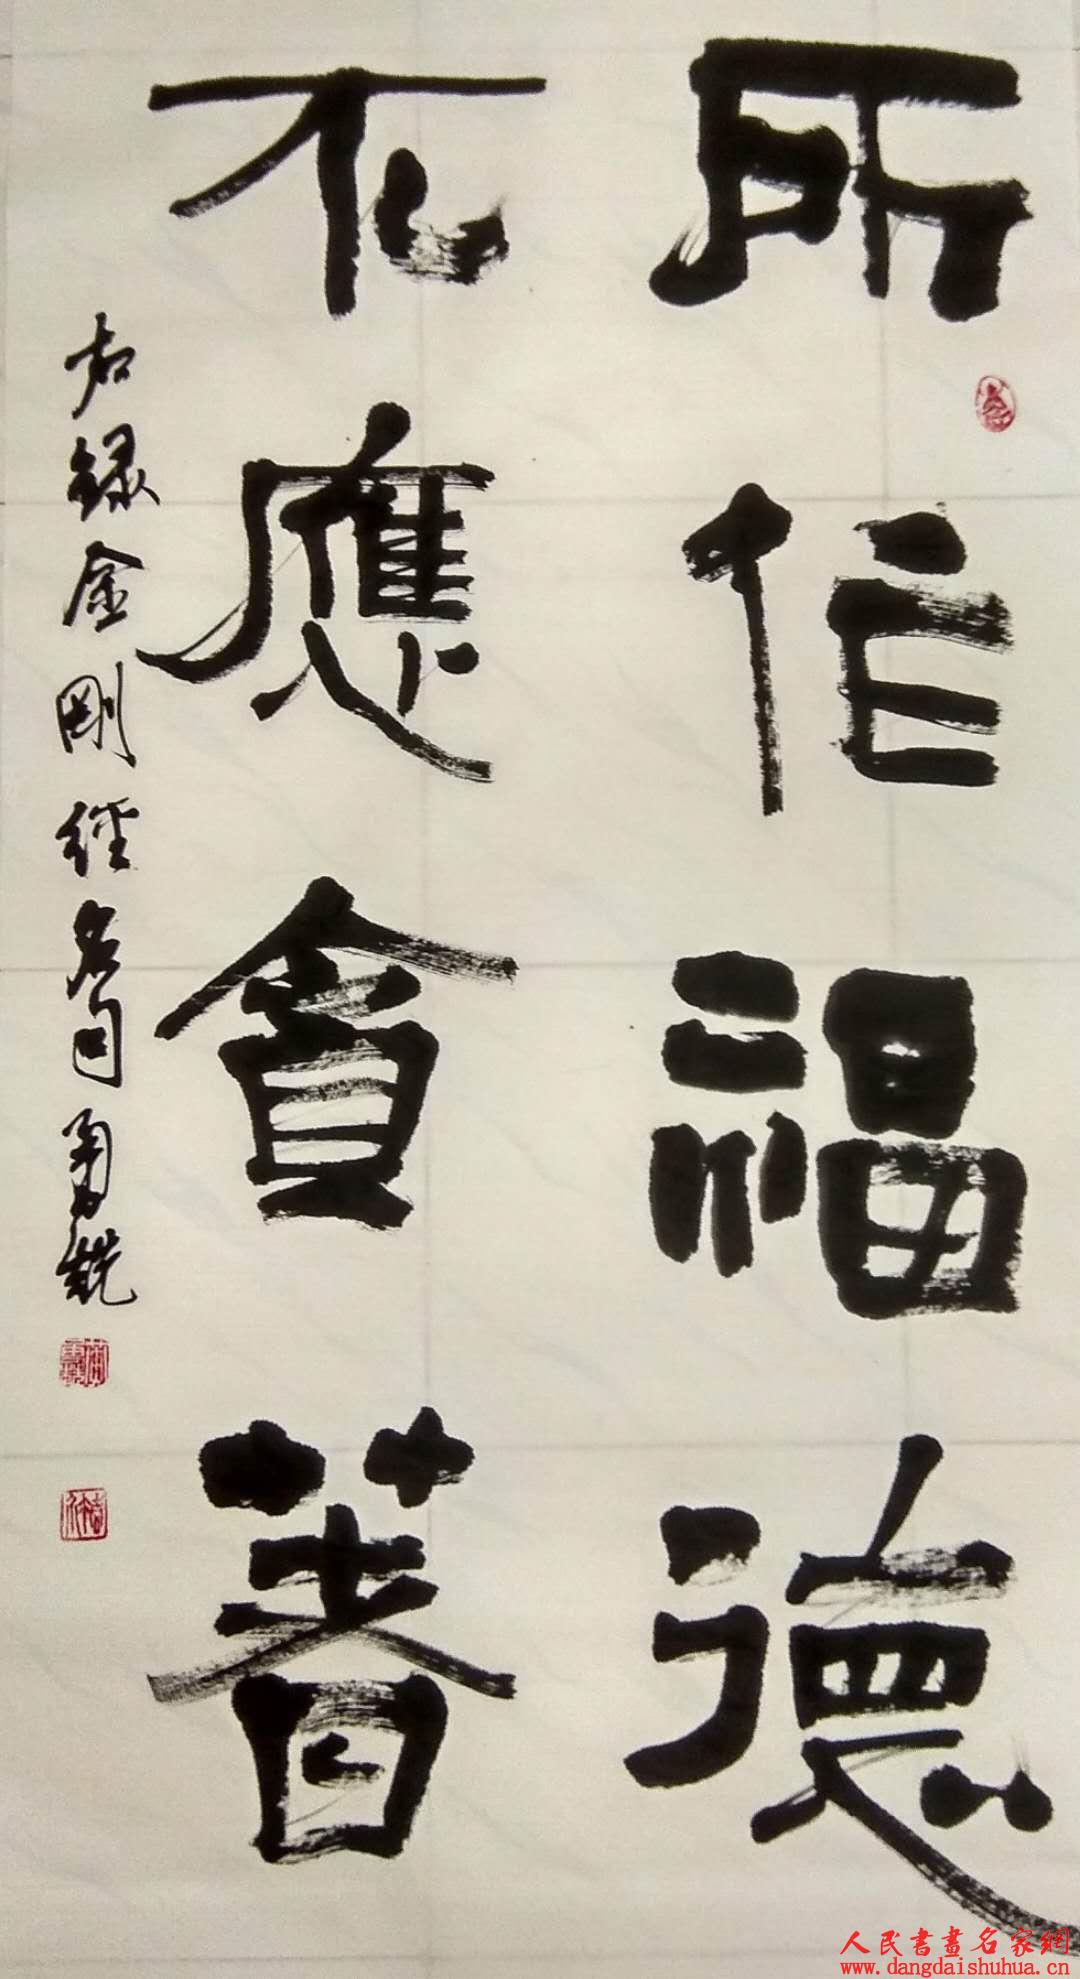 所作福德
不應貪著
右録金剛經名句
人民書畫名家網
www.dangdaishuhua.cn